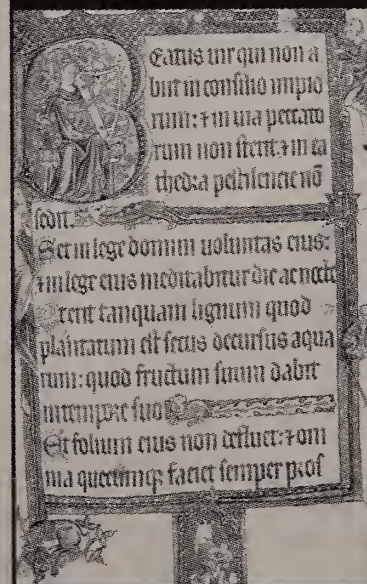 Beatus uir qui non a
biit in consilio impio
rum: ⁊ in uia peccato
rum non stetit. ⁊ in ca
thedra pestilencie nō
sedit.
Set in lege domini uoluntas eius:
⁊ in lege eius meditabitur die ac nocte
t erit tanquam lignum quod
plantatum est secus decursus aqua
rum: quod fructum suum dabit
in tempore suo
Et folium eius non defluet: ⁊ om
nia quecumqꝫ faciet semper pros